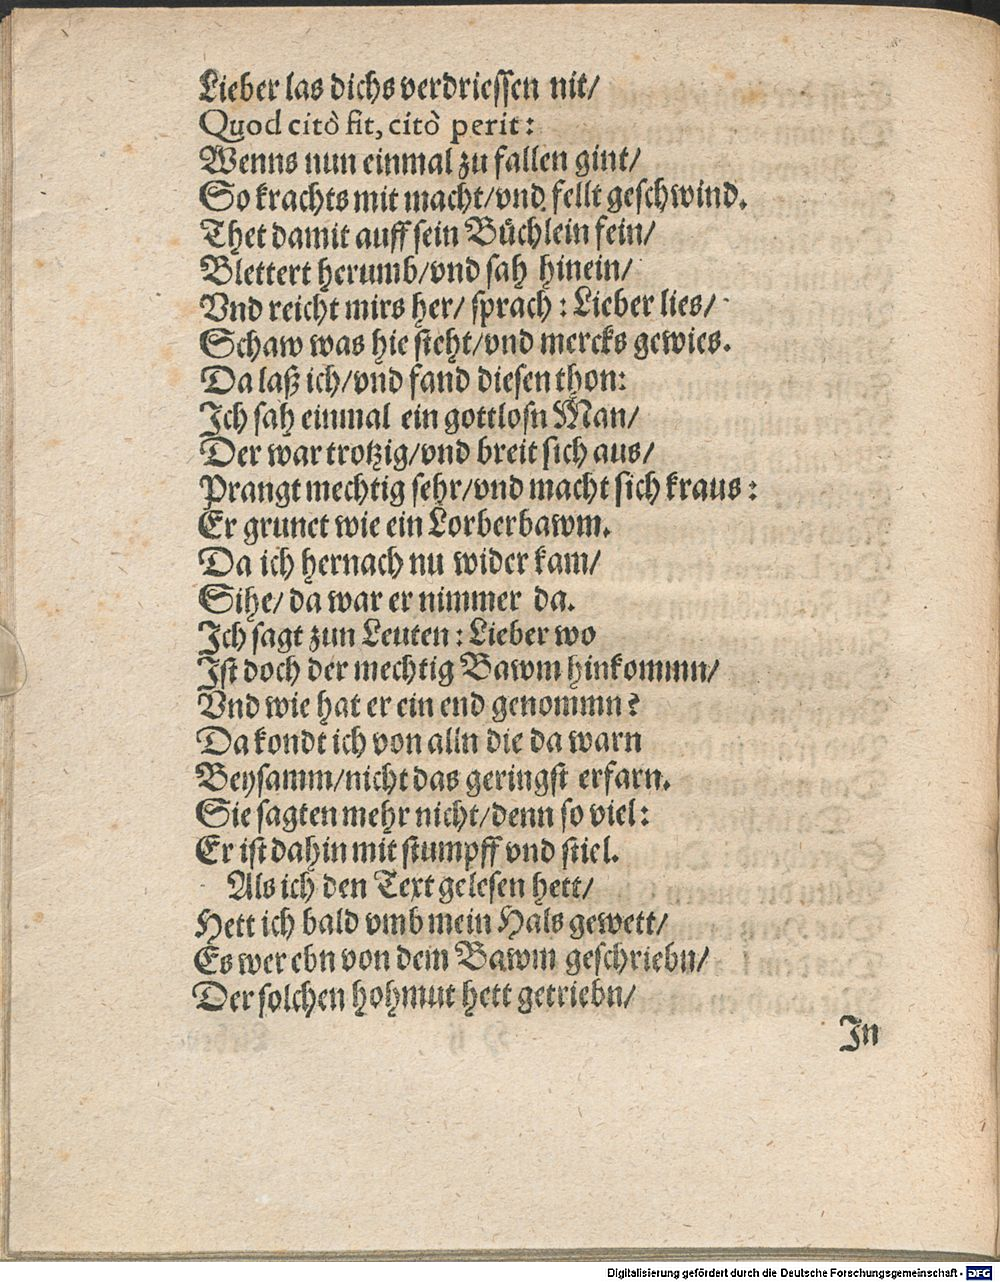 Lieber las dichs verdriessen nit/
Quod citò fit, citò perit:
Wenns nun einmal zu fallen gint/
So krachts mit macht/vnd fellt geschwind.
Thet damit auff sein Büchlein fein/
Blettert herumb/vnd sah hinein/
Vnd reicht mirs her/ sprach: Lieber lies/
Schaw was hie steht/vnd mercks gewies.
Da laß ich/vnd fand diesen thon:
Ich sah einmal ein gottlosn Man/
Der war trotzig/vnd breit sich aus/
Prangt mechtig sehr/vnd macht sich kraus:
Er grunet wie ein Lorberbawm.
Da ich hernach nu wider kam/
Sihe/ da war er nimmer da.
Ich sagt zun Leuten: Lieber wo
Ist doch der mechtig Bawm hinkommn/
Vnd wie hat er ein end genommn?
Da kondt ich von alln die da warn
Beysamm/nicht das geringst erfarn.
Sie sagten mehr nicht/denn so viel:
Er ist dahin mit stumpff vnd stiel.
Als ich den Text gelesen hett/
Hett ich bald vmb mein Hals gewett/
Es wer ebn von dem Bawm geschriebn/
Der solchen hohmut hett getriebn/
In
Digitalisierung gefördert durch die Deutsche Forschungsgemeinschaft - DFG